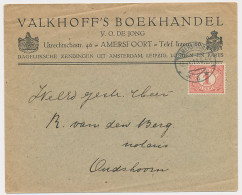 VALKHOFF'S BOEKHANDEL
V. O. DE JONG
Utrechtschestr. 46 - AMERSFOORT - Telef. Interc.
DAGELIJKSCHE ZENDINGEN UIT AMSTERDAM, LEIPZIG, LONDEN EN PARIJS
Weled. gestr. Heer
R. van den Berg
notaris
Oudshoorn